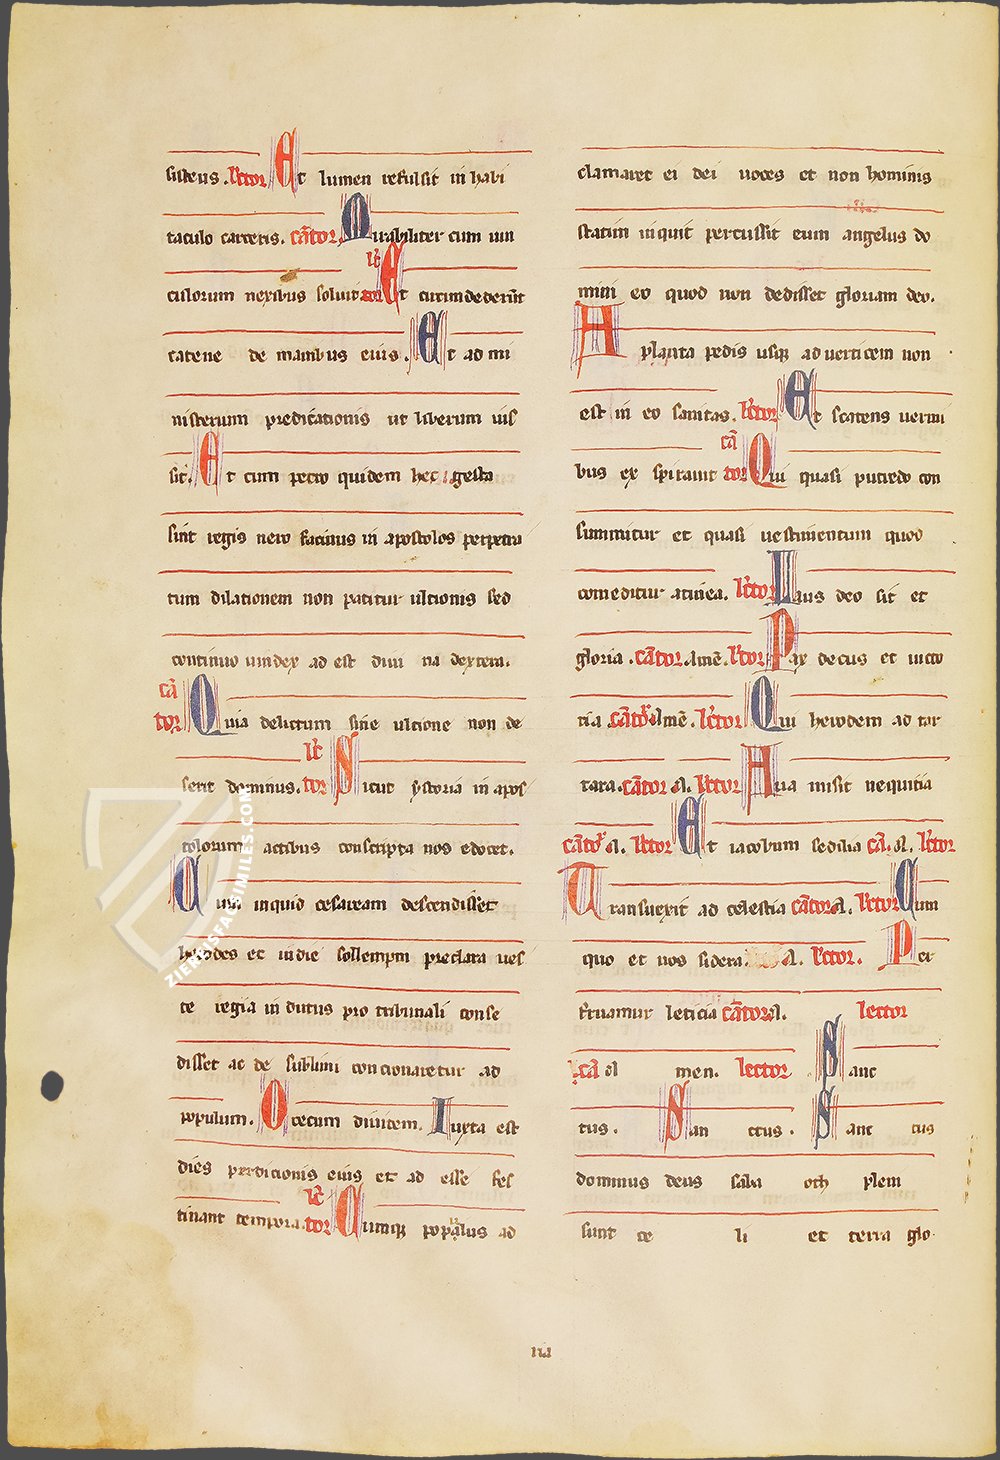 sisteus. lector Et lumen refulsit in habi
taculo carceris. cantor Mirabiliter cum uin
culorum nexibus soluit lector Et circumdederunt
catene de manibus eius. Et ad mi
nisterium predicationis ut liberum uis
sit. Et cum petro quidem hec gesta
sint regis uero facinus in apostolos perpetra
tum dilationem non patitur ultionis sed
continuo uindex ad est diui na dextera.
cantor Quia delictum sine ultione non de
serit dominus. lector Sicut ystoria in apos
tolorum actibus conscripta nos edocet.
Cum inquid cesaream descendisset
herodes et in die sollempni preclara ues
te regia in dutus pro tribunali conse
disset ac de sublimi concionaretur ad
populum. O cecum diuitem. Iuxta est
dies perdicionis eius et ad esse fes
tinant tempora. lector Cumque populus ad
clamaret ei dei uoces et non hominis
statim inquit percussit eum angelus do
mini eo quod non dedisset gloriam deo.
A planta pedis usque ad uerticem non
est in eo sanitas. lector Et scatens uermi
bus ex spirauit cantor Qui quasi putredo con
summitur et quasi uestimentum quod
comeditur a tinea. lector Laus deo sit et
gloria. cantor. Amen. lector Pax decus et uicto
ria. cantor Amen. lector Qui herodem ad tar
tara. cantor A. lector Sua misit nequitia
cantor A. lector Et iacobum sedilia can. A. lector
Transuexit ad celestia cantor A. lector Cum
quo et nos sidera. A. lector. Per
fruamur leticia cantor A. lector
can A men. lector Sanc
tus. San ctus. Sanc tus
dominus deus saba oth pleni
sunt ce li et terra glo